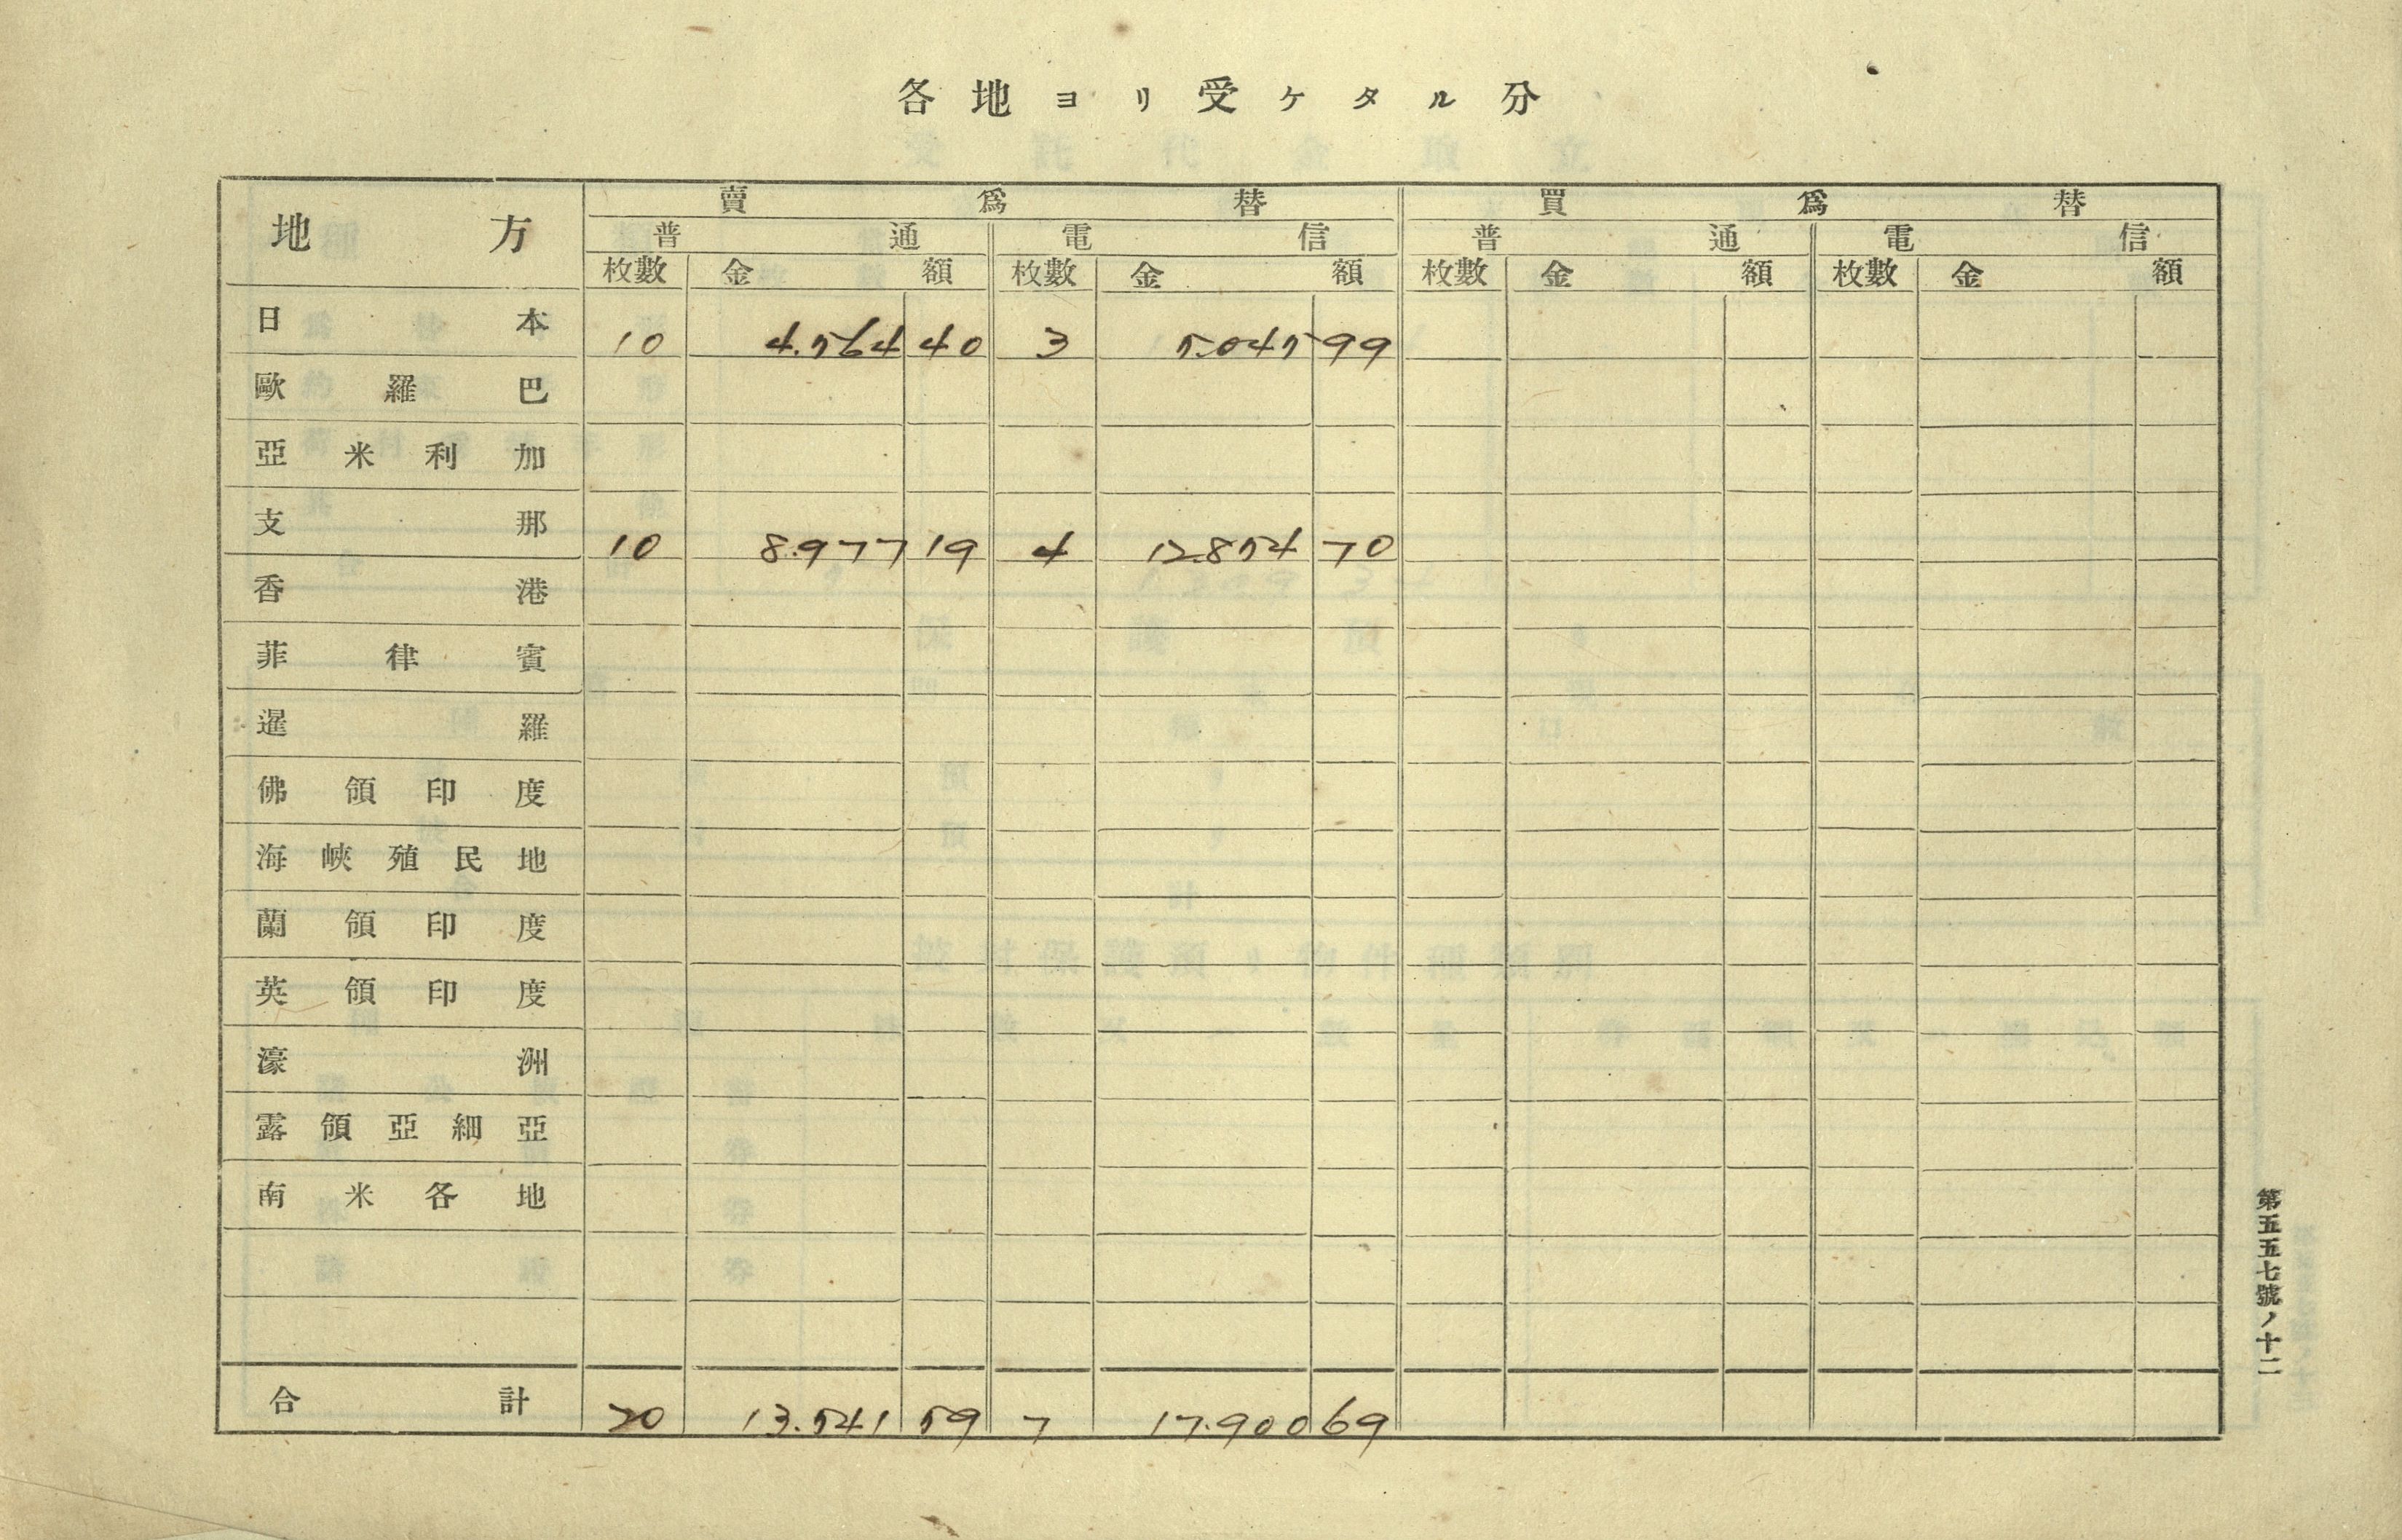 各地ヨリ受ケタル分
地方 賣爲替 買爲替
普通 電信 普通 電信
枚數 金額 枚數 金額 枚數 金額 枚數 金額
日本 10 4.564 40 3 5.045 99
歐羅巴
亞米利加
支那 10 8.977 19 4 12.854 70
香港
菲律賓
暹羅
佛領印度
海峽殖民地
蘭領印度
英領印度
濠洲
露領亞細亞
南米各地
合計 20 13.541 59 7 17.900 69
第五五七號ノ十二